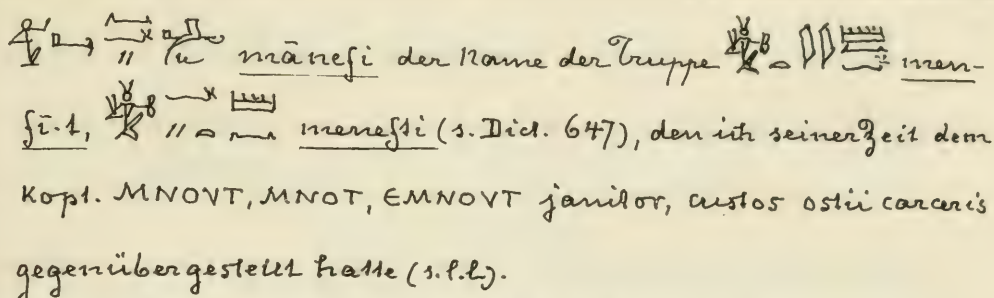 mānefi der Name der Truppe men-
fi.t, menefti (s. Dict. 647), den ich seiner Zeit dem
Kopt. ⲘⲚⲞⲨⲦ, ⲘⲚⲞⲦ, ⲈⲘⲚⲞⲨⲦ janitor, custos ostii carceris
gegenübergestellt hatte (s. l. l.).